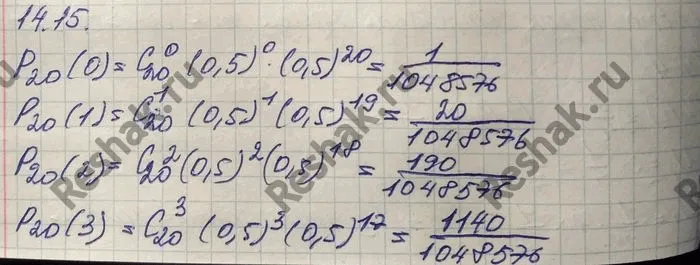 14.15.
P₂₀(0) = C₂₀⁰ (0,5)⁰ · (0,5)²⁰ = 1/1048576
P₂₀(1) = C₂₀¹ (0,5)¹ (0,5)¹⁹ = 20/1048576
P₂₀(2) = C₂₀² (0,5)² (0,5)¹⁸ = 190/1048576
P₂₀(3) = C₂₀³ (0,5)³ (0,5)¹⁷ = 1140/1048576
Reshak.ru
Reshak.ru
Reshak.ru
Reshak.ru